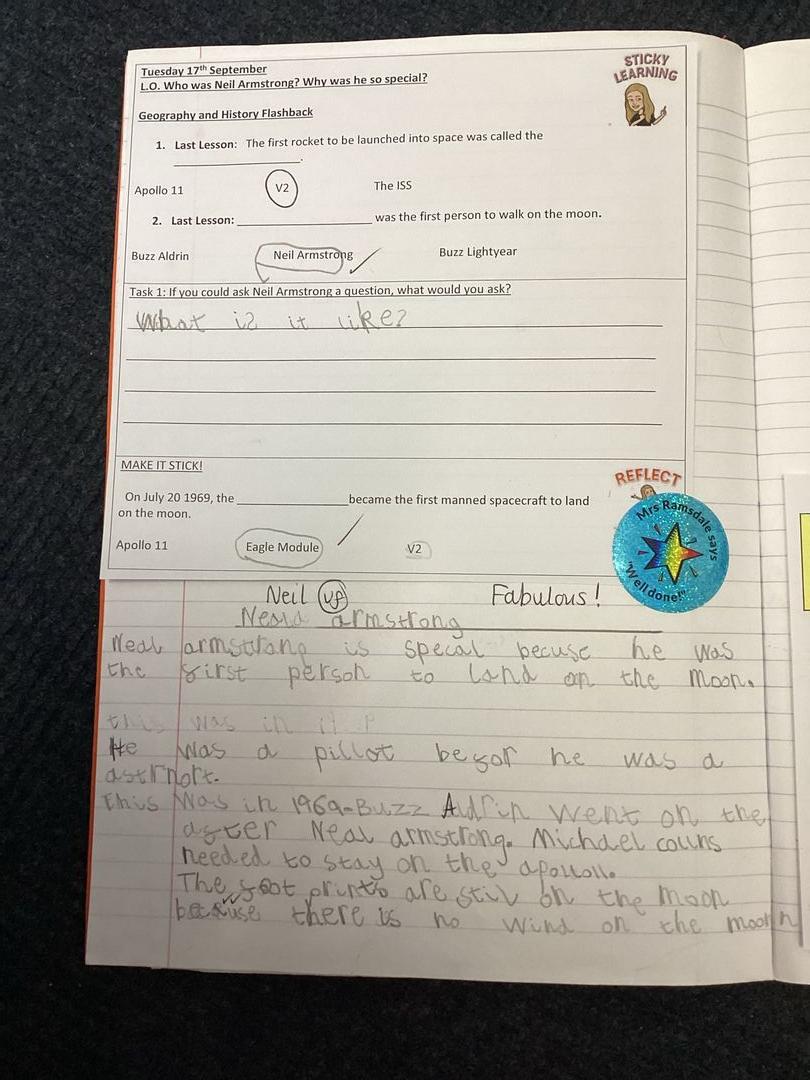 Tuesday 17th September
L.O. Who was Neil Armstrong? Why was he so special?
STICKY LEARNING
Geography and History Flashback
1. Last Lesson: The first rocket to be launched into space was called the
____________________.
Apollo 11 V2 The ISS
2. Last Lesson: ____________________ was the first person to walk on the moon.
Buzz Aldrin Neil Armstrong Buzz Lightyear
Task 1: If you could ask Neil Armstrong a question, what would you ask?
What is it like?
MAKE IT STICK!
REFLECT
On July 20 1969, the ________________ became the first manned spacecraft to land
on the moon.
Apollo 11 Eagle Module V2
Mrs Ramsdale says
"Well done!"
Neil VF Fabulous!
armstrong
Neal armstrong is specal becuse he was
the first person to land on the moon.
this was in
He was a pillot befor he was a
astrnort.
This was in 1969-Buzz Aldrin went on the
after Neal armstrong. Michael couns
needed to stay on the apolloll.
The foot prints are stil on the moon
because there is no wind on the moon